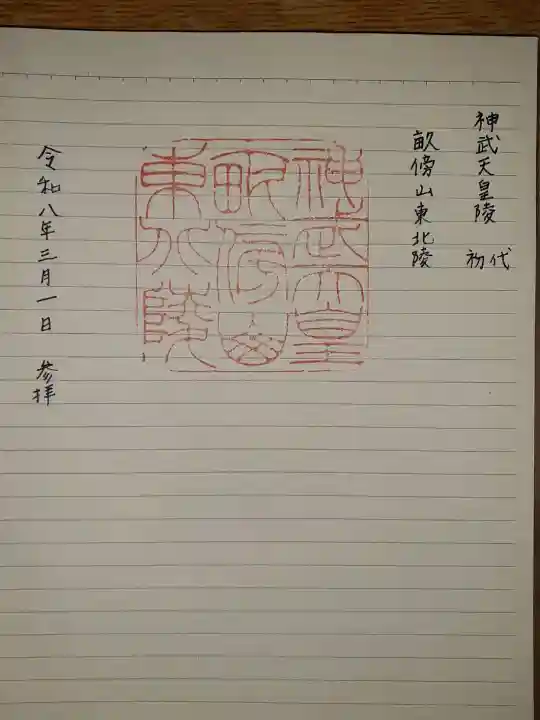 神武天皇陵　初代
畝傍山東北陵
神武天皇
畝傍山
東北陵
令和八年三月一日　参拝